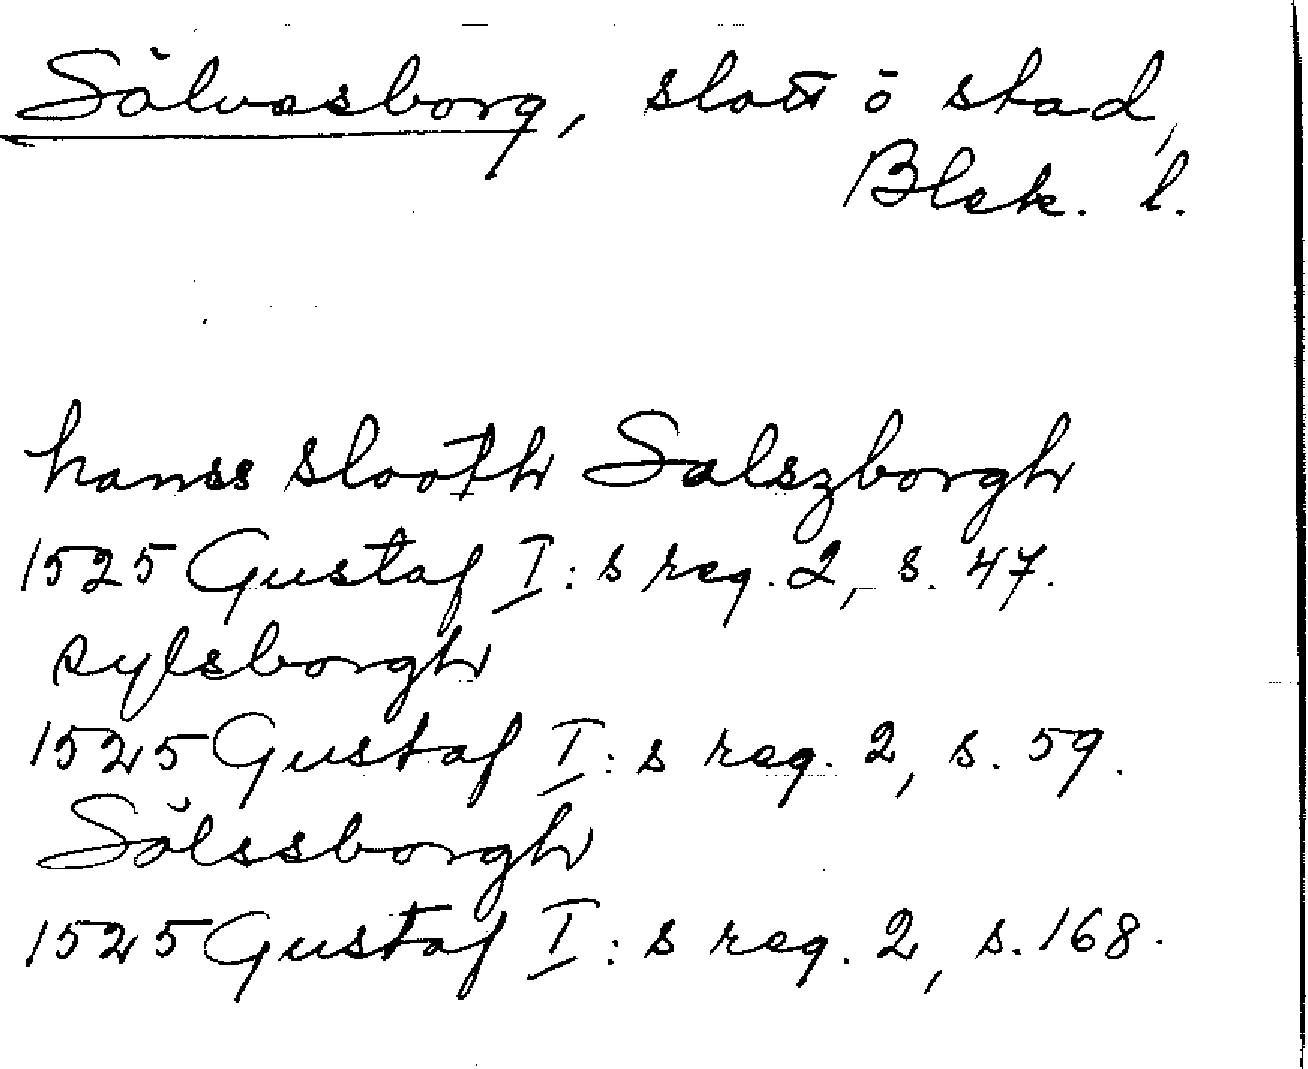 Sölvesborg, slott o stad,
Blek. l.
hanss slooth Salszborgh
1525 Gustaf I:s reg. 2, s. 47.
sylsborgh
1525 Gustaf I:s reg. 2, s. 59.
Sölssborgh
1525 Gustaf I:s reg. 2, s. 168.